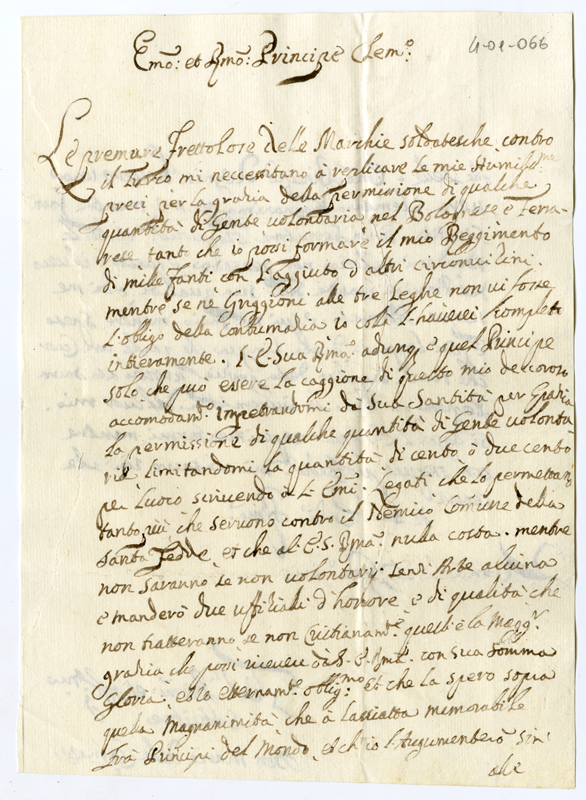 4-01-066
Emo: et Rmo: Principe Clemo:
Le premure frettolose delle Marchie soldatesche contro
il Turco mi neccessitano à replicare le mie Humilisme
preci per la grazia della permissione di qualche
quantità di Gente volontaria nel Bolognese e Ferra-
rese tanti che io possi formare il mio Reggimento
di mille fanti con l'aggiuto d'altri circonvicini.
mentre se nè Griggioni alle tre Leghe non vi fosse
l'obligo della Contumatia io colà l'haverei completo
intieramente. L. E. Sua Rma: adunq, è quel Principe
solo che può essere la caggione di questo mio decoroso
accomodamto. impetrandomi da Sua Santità per Grazia
la permissione di qualche quantità di Gente volonta
rie limitandomi la quantità di cento, ò due cento
per luoco scrivendo à l. Emi: Legati che lo permettano
tanto più che servono contro il Nemico Comune della
Santa Fedde, et che al. E. S. Rma: nulla costa. mentre
non saranno se non volontarij. senz'Arte alcuna
e manderò due uffitiali d'honore, e di qualità che
non tratteranno, se non Cristianamte. questa è la Maggr.
grazia che possi ricevere dà S. E. Rma. con sua somma
Gloria, et lo etternamte. obligmo. Et che la spero sopra
quella Magnanimità che à lasciatta memorabile
frà Principi del Mondo, et ch'io l'Augumenterò sin'
alle